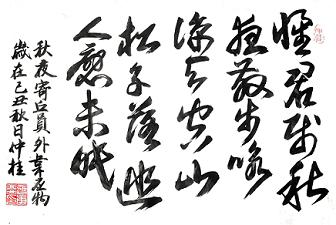 懷君屬秋
夜散步咏
涼天空山
松子落幽
人應未眠
秋夜寄丘員外韋應物
歲在己丑秋日仲桂